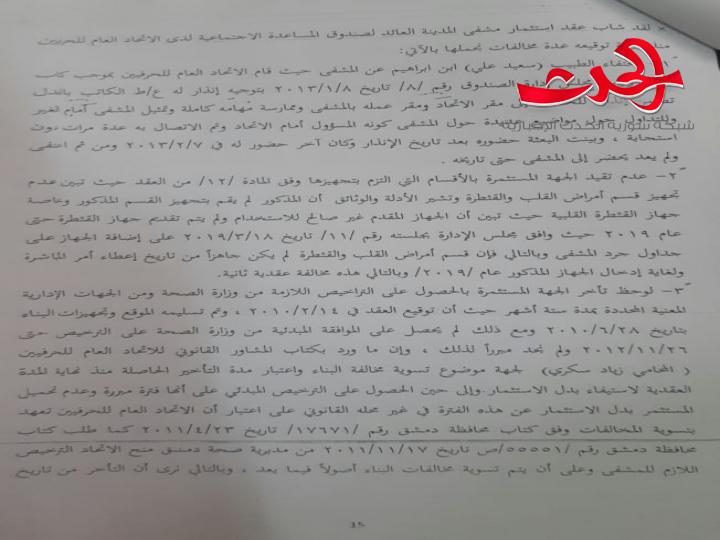 × لقد شاب عقد استثمار مشفى المدينة العائد لصندوق المساعدة الاجتماعية لدى الاتحاد العام للحرفيين
توقيعه عدة مخالفات نجملها بالآتي:
الحدث
شبكة سورية الحدث الإخبارية
الطبيب (سعيد علي) ابن ابراهيم عن المشفى حيث قام الاتحاد العام للحرفيين بموجب كتاب
إدارة الصندوق رقم /٨/ تاريخ ٢٠١٣/١/٨ بتوجيه إنذار له ع/ط الكاتب بالعدل
مقر الاتحاد ومقر عمله بالمشفى وممارسة مهامه كاملة وتمثيل المشفى أمام الغير
وللتداول حول مواضيع عديدة حول المشفى كونه المسؤول أمام الاتحاد وتم الاتصال به عدة مرات دون
استجابة ، وبينت البعثة حضوره بعد تاريخ الإنذار وكان آخر حضور له في ٢٠١٣/٢/٧ ومن ثم اختفى
ولم يعد يحضر إلى المشفى حتى تاريخه .
٢- عدم تقيد الجهة المستثمرة بالأقسام التي التزم بتجهيزها وفق المادة /١٢/ من العقد حيث تبين عدم
تجهيز قسم أمراض القلب والقثطرة وتشير الأدلة والوثائق أن المذكور لم يقم بتجهيز القسم المذكور وخاصة
جهاز القثطرة القلبية حيث تبين أن الجهاز المقدم غير صالح للاستخدام ولم يتم تقديم جهاز القثطرة حتى
عام ٢٠١٩ حيث وافق مجلس الإدارة بجلسته رقم /١١/ تاريخ ٢٠١٩/٣/١٨ على إضافة الجهاز على
جداول جرد المشفى وبالتالي فإن قسم أمراض القلب والقثطرة لم يكن جاهزاً من تاريخ إعطاء أمر المباشرة
ولغاية إدخال الجهاز المذكور عام /٢٠١٩/ وبالتالي هذه مخالفة عقدية ثانية.
٣- لوحظ تأخر الجهة المستثمرة بالحصول على التراخيص اللازمة من وزارة الصحة ومن الجهات الإدارية
المعنية المحددة بمدة ستة أشهر حيث أن توقيع العقد في ٢٠١٠/٢/١٤ ، وتم تسليمه الموقع وتجهيزات البناء
بتاريخ ٢٠١٠/٦/٢٨ ومع ذلك لم يحصل على الموافقة المبدئية من وزارة الصحة على الترخيص حتى
٢٠١٢/١١/٢٦ ولم نجد مبرراً لذلك ، وإن ما ورد بكتاب المشاور القانوني للاتحاد العام للحرفيين
( المحامي زياد سكري) لجهة موضوع تسوية مخالفة البناء واعتبار مدة التأخير الحاصلة منذ نهاية المدة
العقدية لاستيفاء بدل الاستثمار وإلى حين الحصول على الترخيص المبدئي على أنها فترة مبررة وعدم تحميل
المستثمر بدل الاستثمار عن هذه الفترة في غير محله القانوني على اعتبار أن الاتحاد العام للحرفيين تعهد
بتسوية المخالفات وفق كتاب محافظة دمشق رقم /١٧٦٧١/ تاريخ ٢٠١١/٤/٢٣ كما طلب كتاب
محافظة دمشق رقم /٥٥٥٥١/ص تاريخ ٢٠١١/١١/١٧ من مديرية صحة دمشق منح الاتحاد الترخيص
اللازم للمشفى وعلى أن يتم تسوية مخالفات البناء أصولاً فيما بعد ، وبالتالي نرى أن التأخر من تاريخ
15